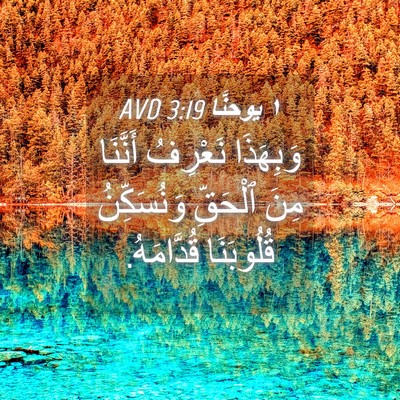 ١ يوحنَّا 3:19 AVD
وَبِهَذَا نَعْرِفُ أَنَّنَا
مِنَ ٱلْحَقِّ وَنُسَكِّنُ
قُلُوبَنَا قُدَّامَهُ.